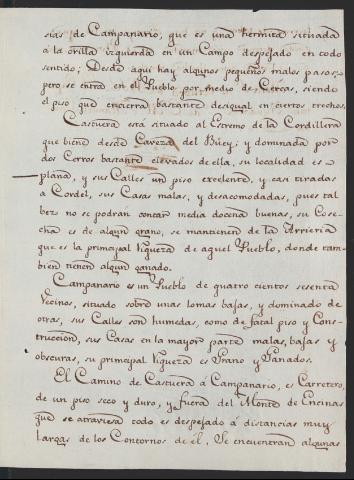 sias de Campanario, que es una hermita situada
á la orilla izquierda en un Campo despejado en todo
sentido; Desde aqui hay algunos pequeños malos pasos,
pero se entra en el Pueblo por medio de Cercas, siendo
el piso que encierra bastante desigual en ciertos trechos.
Castuera está situado al Estremo de la Cordillera
que biene desde Caveza del Buey, y dominada por
dos Cerros bastante elevados de ella, su localidad es
plana, y sus Calles un piso excelente, y casi tiradas
á Cordel, sus Casas malas, y desacomodadas, pues tal
bez no se podran contar media docena buenas, su Cose-
cha es de algun grano, se mantienen de la Arrieria
que es la principal riqueza de aquel Pueblo, donde tam-
bien tienen algun ganado.
Campanario es un Pueblo de quatro cientos sesenta
Vecinos, situado sobre unas lomas bajas, y dominado de
otras, sus Calles son humedas, como de fatal piso y Cons-
trucción, sus Casas en la mayor parte malas, bajas y
obscuras, su principal riqueza es Grano y Ganados.
El Camino de Castuera á Campanario, es Carretero,
de un piso seco y duro, y fuera del Monte de Encinas
que se atraviesa todo es despejado á distancias muy
largas de los Contornos de él. Se encuentran algunas